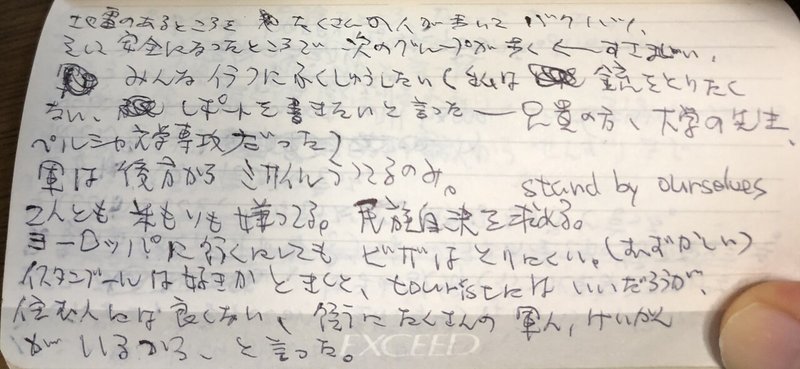 地雷のあるところを たくさんの人が歩いて バクハツ。
そして安全になったところで 次のグループが歩く ←すさまじい。
みんな イラクにふくしゅうしたい(私は 銃をとりたく
ない、レポートを書きたいと言った ― 兄貴の方、大学の先生、
ペルシャ文学専攻だった)
軍は後方からミサイルうってるのみ。 stand by ourselves
2人とも 米もソも嫌ってる。 民族自決を求める。
ヨーロッパに行くにしても ビザはとりにくい。(むずかしい)
イスタンブールは好きかときくと、touristにはいいだろうが、
住む人には良くない、街にたくさんの軍人、けいかん
がいるから、と言った。
EXCEED